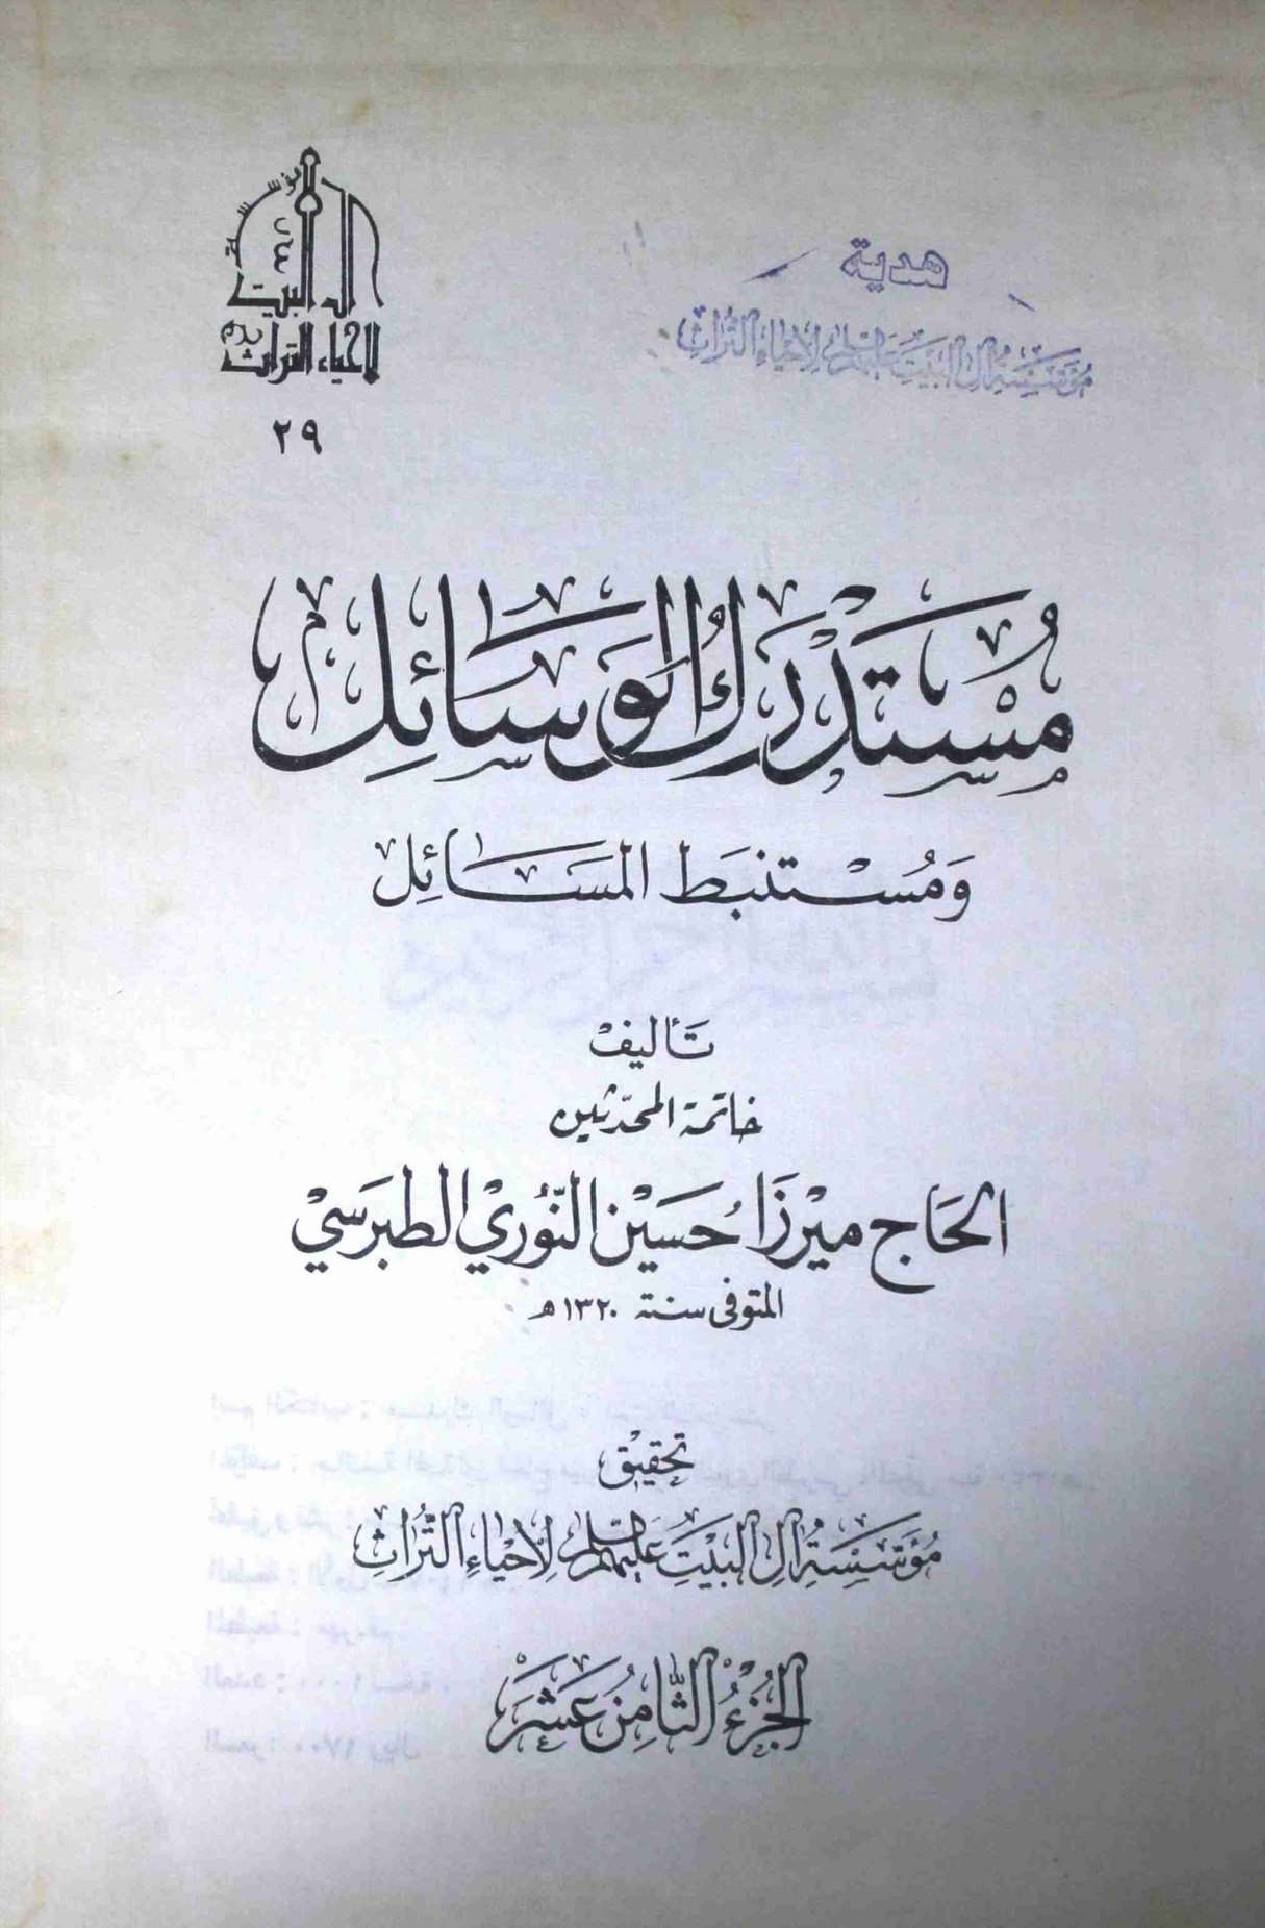 مؤسسة
آل البيت
لإحياء التراث
٢٩
هدية
مؤسسة آل البيت عليهم السلام لإحياء التراث
مُسْتَدْرَكُ الوَسَائِل
وَمُسْتنبَط المسَائِل
تَأليف
خاتمة المحدّثين
الحَاج ميرْزَا حُسَيْن النّوُري الطبرَسيْ
المتوفى سنة ١٣٢٠ه
تحقيْق
مُؤسَّسَةُ آلِ البَيْتِ عَليهمُ السَّلام لِإحْيَاءِ التُّرَاثِ
الجُزْءُ الثَّامِنُ عَشَرَ